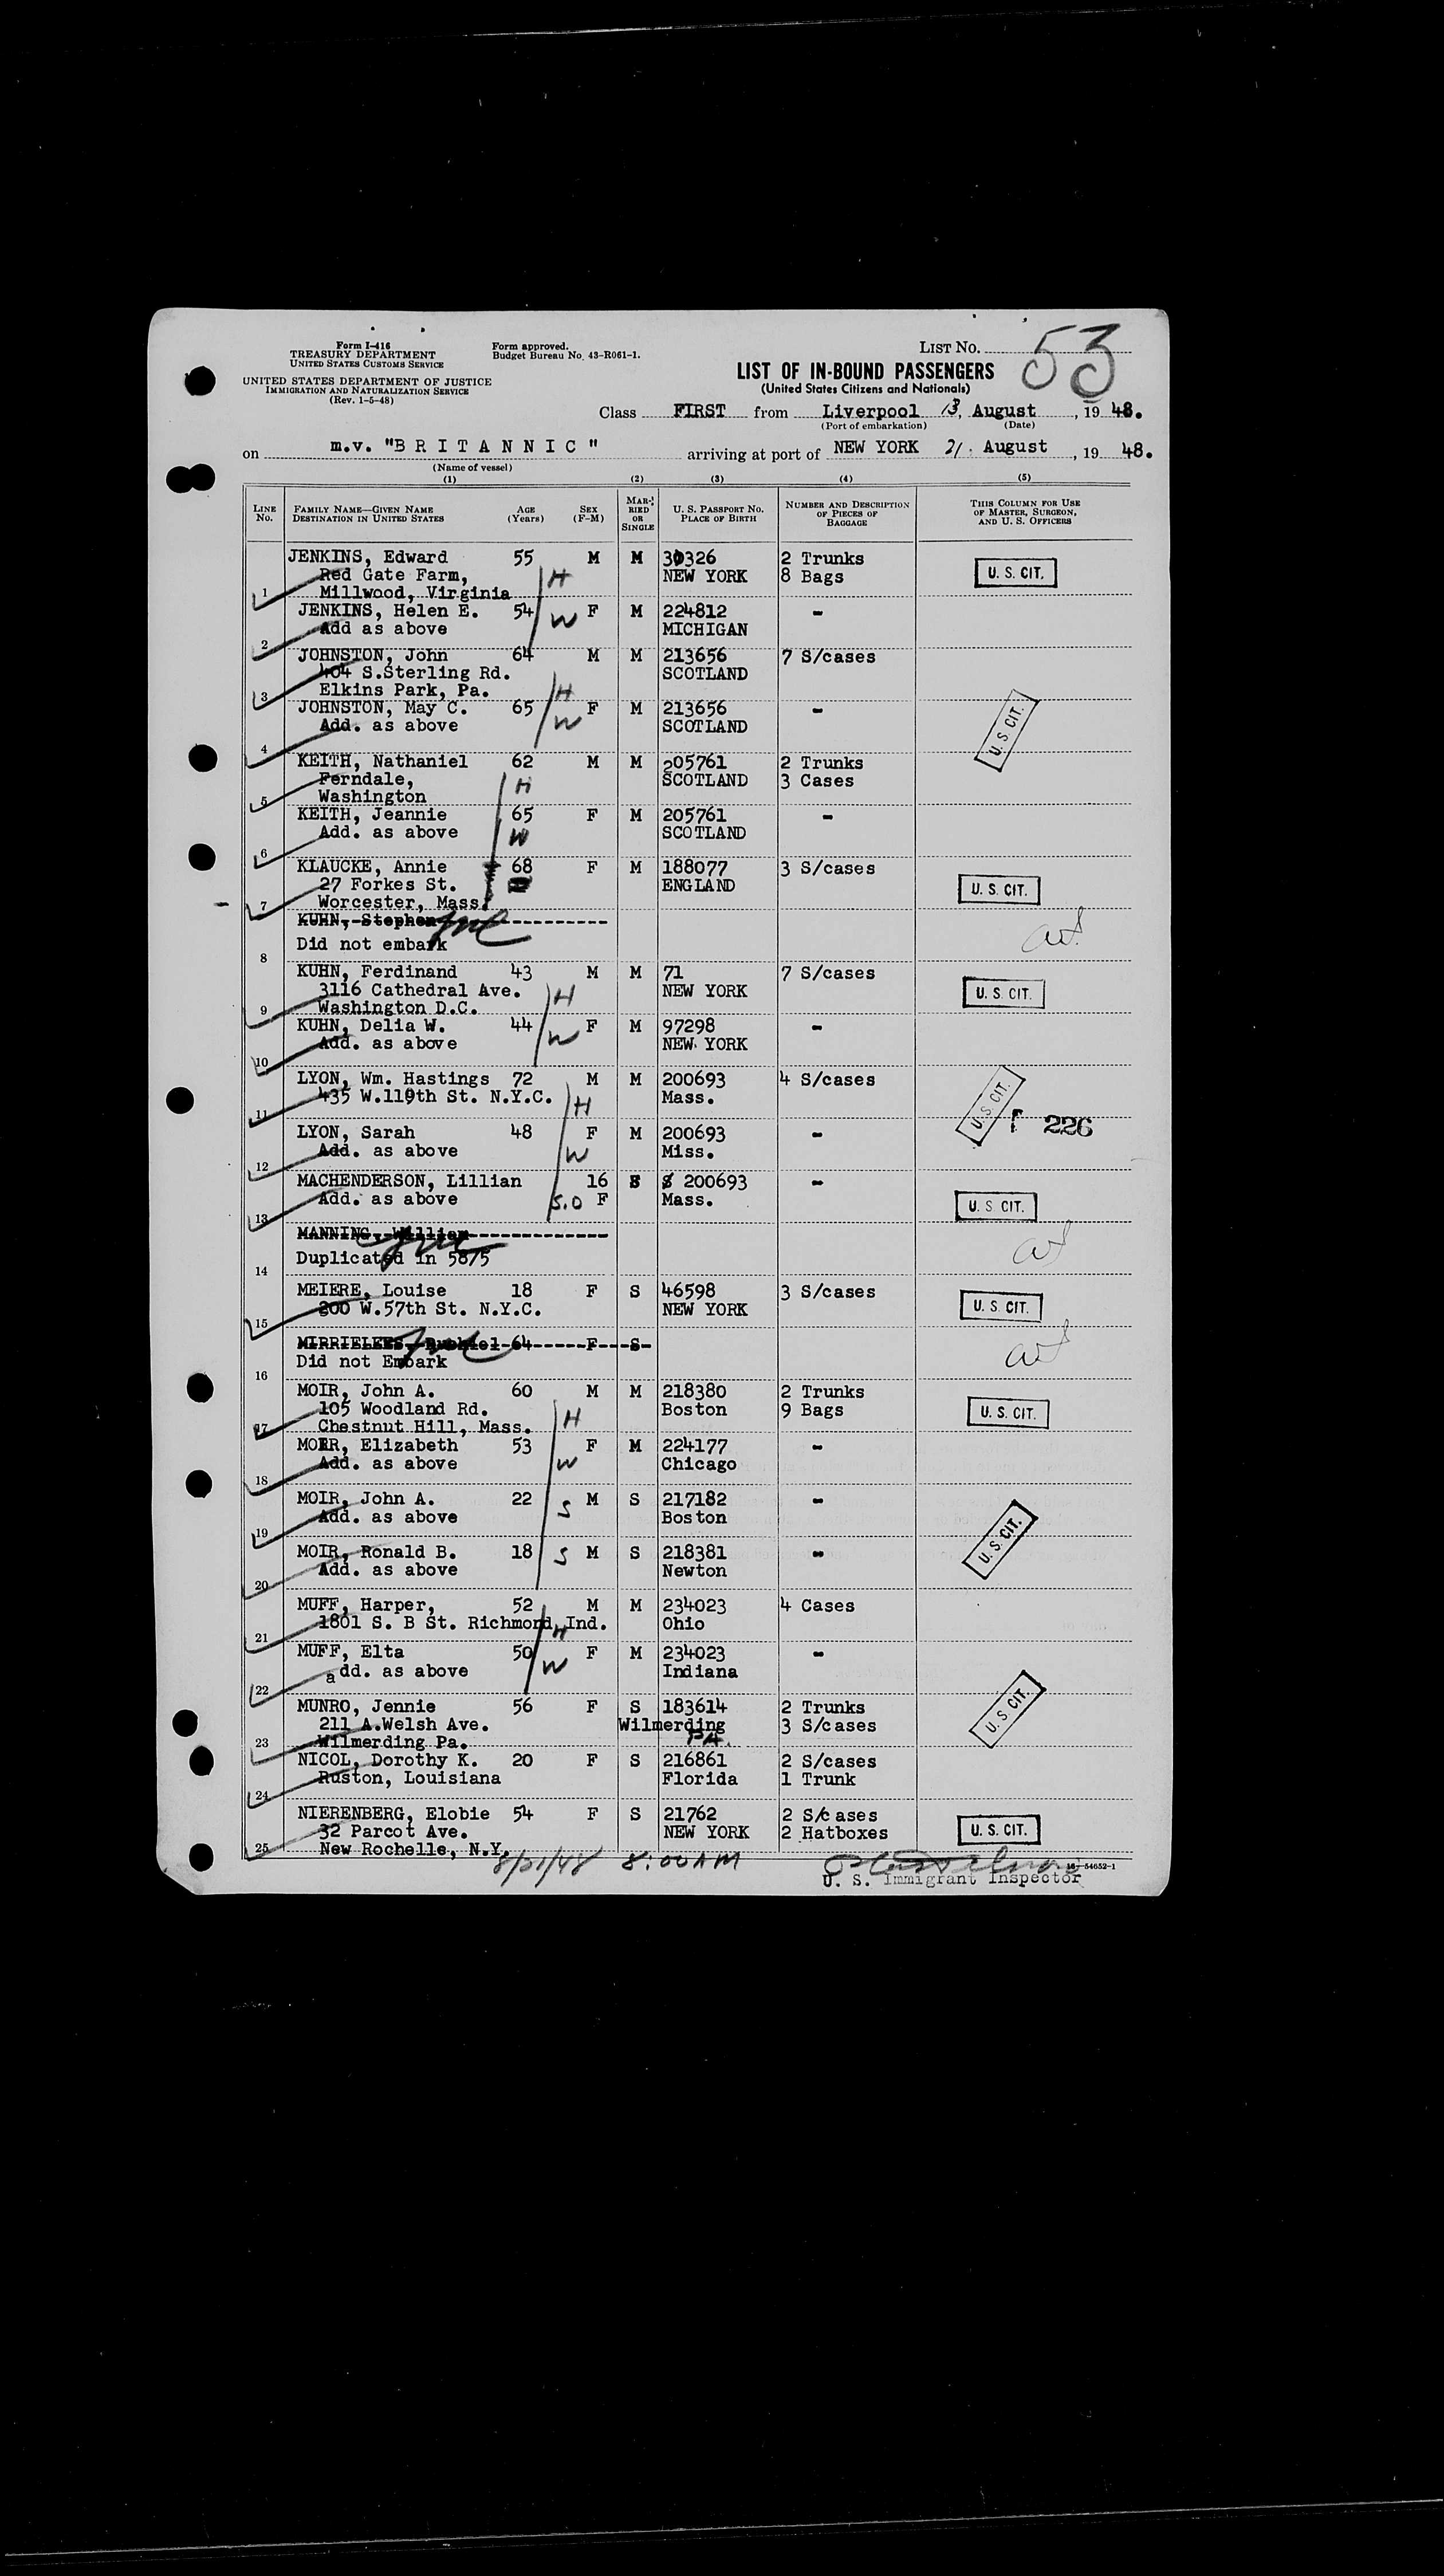 Form I-416
TREASURY DEPARTMENT
UNITED STATES CUSTOMS SERVICE
UNITED STATES DEPARTMENT OF JUSTICE
IMMIGRATION AND NATURALIZATION SERVICE
(Rev. 1-5-48)
Form approved.
Budget Bureau No. 43-R061-1.
LIST NO. 53
LIST OF IN-BOUND PASSENGERS
(United States Citizens and Nationals)
Class FIRST from Liverpool 13, August, 19 48.
(Port of embarkation) (Date)
on m.v. "B R I T A N N I C" arriving at port of NEW YORK 21. August, 19 48.
(Name of vessel)
(1) (2) (3) (4) (5)
LINE No. FAMILY NAME—GIVEN NAME DESTINATION IN UNITED STATES AGE (Years) SEX (F-M) MARRIED OR SINGLE U. S. PASSPORT NO. PLACE OF BIRTH NUMBER AND DESCRIPTION OF PIECES OF BAGGAGE THIS COLUMN FOR USE OF MASTER, SURGEON, AND U. S. OFFICERS
JENKINS, Edward 55 M M 30326 2 Trunks
Red Gate Farm, H NEW YORK 8 Bags U. S. CIT.
1 Millwood, Virginia
JENKINS, Helen E. 54 W F M 224812 -
Add as above MICHIGAN
2
JOHNSTON, John 64 M M 213656 7 S/cases
404 S.Sterling Rd. SCOTLAND
3 Elkins Park, Pa. H
JOHNSTON, May C. 65 F M 213656 -
Add. as above W SCOTLAND U. S. CIT.
4
KEITH, Nathaniel 62 M M 205761 2 Trunks
Ferndale, H SCOTLAND 3 Cases
5 Washington
KEITH, Jeannie 65 F M 205761 -
Add. as above W SCOTLAND
6
KLAUCKE, Annie 68 F M 188077 3 S/cases
27 Forkes St. ENGLAND U. S. CIT.
7 Worcester, Mass.
KUHN, Stephen
Did not embark
8
KUHN, Ferdinand 43 M M 71 7 S/cases
3116 Cathedral Ave. H NEW YORK U. S. CIT.
9 Washington D.C.
KUHN, Delia W. 44 W F M 97298 -
Add. as above NEW YORK
10
LYON, Wm. Hastings 72 M M 200693 4 S/cases
435 W.119th St. N.Y.C. H Mass. U. S. CIT.
11 226
LYON, Sarah 48 F M 200693 -
Add. as above W Miss.
12
MACHENDERSON, Lillian 16 S 200693 -
Add. as above S.D F Mass. U. S. CIT.
13
MANNING, William
Duplicated in 5875
14
MEIERE, Louise 18 F S 46598 3 S/cases
200 W.57th St. N.Y.C. NEW YORK U. S. CIT.
15
MIRRIELEES, 64 F S
Did not Embark
16
MOIR, John A. 60 M M 218380 2 Trunks
105 Woodland Rd. H Boston 9 Bags U. S. CIT.
17 Chestnut Hill, Mass.
MOIR, Elizabeth 53 F M 224177 -
Add. as above W Chicago
18
MOIR, John A. 22 S M S 217182 -
Add. as above Boston
19
MOIR, Ronald B. 18 S M S 218381 -
Add. as above Newton U. S. CIT.
20
MUFF, Harper, 52 M M 234023 4 Cases
1801 S. B St. Richmond, Ind. H Ohio
21
MUFF, Elta 50 W F M 234023 -
add. as above Indiana
22
MUNRO, Jennie 56 F S 183614 2 Trunks
211 A.Welsh Ave. Wilmerding PA. 3 S/cases U. S. CIT.
23 Wilmerding Pa.
NICOL, Dorothy K. 20 F S 216861 2 S/cases
Ruston, Louisiana Florida 1 Trunk
24
NIERENBERG, Elobie 54 F S 21762 2 S/cases
32 Parcot Ave. NEW YORK 2 Hatboxes U. S. CIT.
25 New Rochelle, N.Y.
8/21/48 8:00 AM
16-54652-1
U. S. Immigrant Inspector